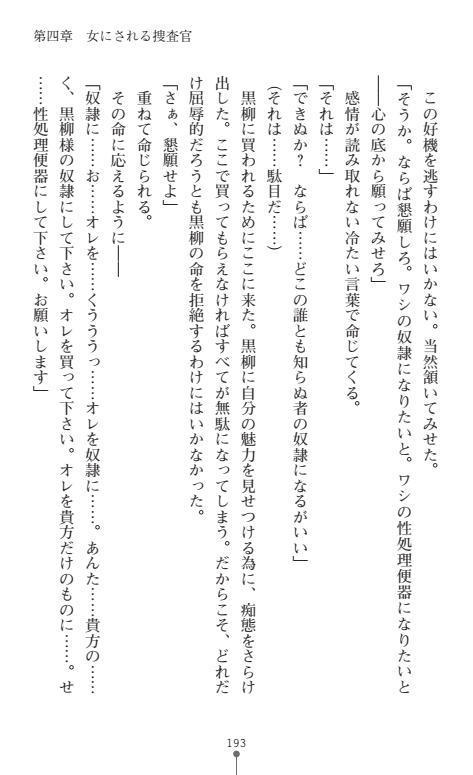 第四章　女にされる捜査官
この好機を逃すわけにはいかない。当然頷いてみせた。
「そうか。ならば懇願しろ。ワシの奴隷になりたいと。ワシの性処理便器になりたいと
――心の底から願ってみせろ」
感情が読み取れない冷たい言葉で命じてくる。
「それは……」
「できぬか？　ならば……どこの誰とも知らぬ者の奴隷になるがいい」
(それは……駄目だ……)
黒柳に買われるためにここに来た。黒柳に自分の魅力を見せつける為に、痴態をさらけ
出した。ここで買ってもらえなければすべてが無駄になってしまう。だからこそ、どれだ
け屈辱的だろうとも黒柳の命を拒絶するわけにはいかなかった。
「さぁ、懇願せよ」
重ねて命じられる。
その命に応えるように――
「奴隷に……お……オレを……くうううっ……オレを奴隷に……。あんた……貴方の……
く、黒柳様の奴隷にして下さい。オレを買って下さい。オレを貴方だけのものに……。せ
……性処理便器にして下さい。お願いします」
193